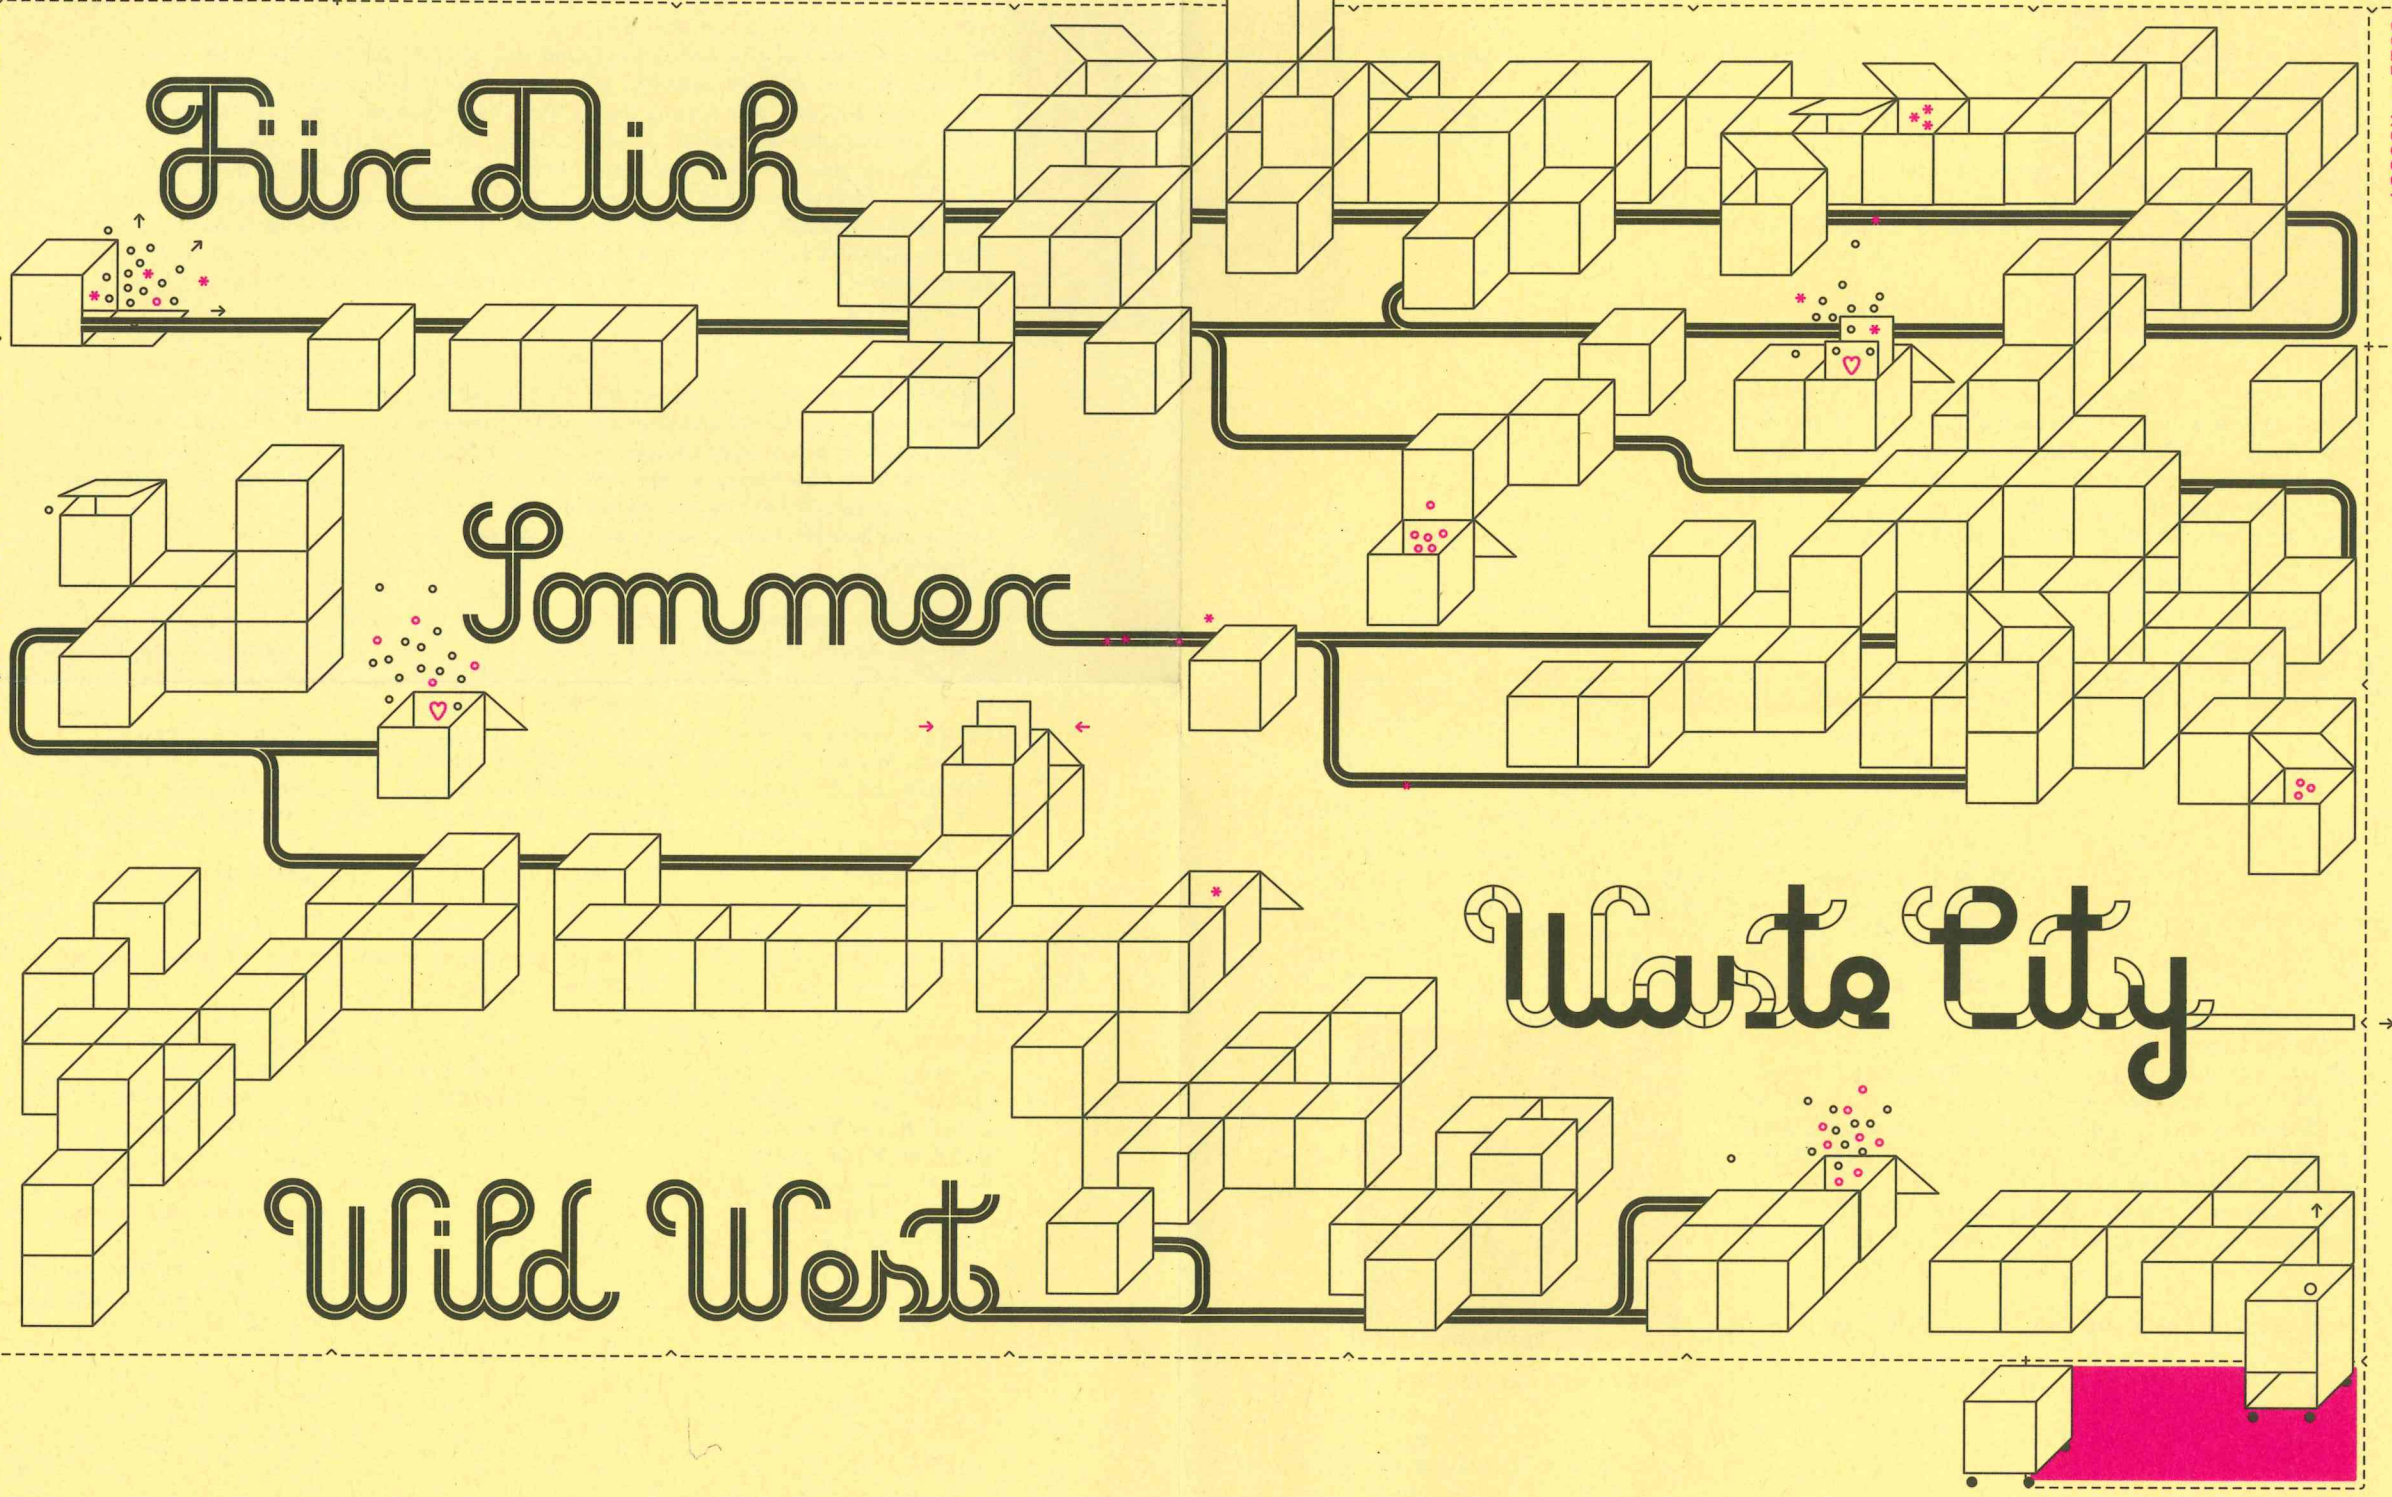 Für Dich
Sommer
Waste City
Wild West